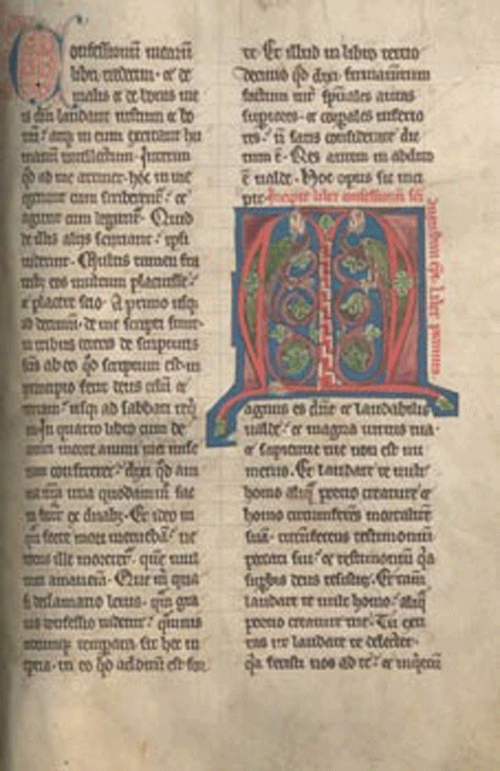 Confessionum mearū
libri tredecim · et de
malis et de bonis me
is dm̄ laudant iustum et bo
nū: atqȝ in eum excitant hu
manū intellectum · Interim
qd̄ ad me attinet · hoc in me
egerunt cum scriberent᷑ : et
agunt cum legunt᷑ · Quid
de illis alij sentiant : ipsi
viderint · Multis tamen fra
tribȝ eos multum placuisse
et placere scio · A primo usqȝ
ad decimū · de me scripti sunt ·
in tribus ceteris de scripturis
sc̄is ab eo qd̄ scriptum est · in
principio fecit deus celū et
terram : usqȝ ad sabbati reqͥ
em In quarto libro cum de
amici morte animi mei mise
riam confiterer : dixi qd̄ ani
ma nr̄a una quodam̄o fac
ta fuerat ex duabȝ · Et ideo in
quā forte mori metuebā : ne
totus ille moreret᷑ · quē mul
tum amaverā · Que m̄ quasi
declamatio levis · quā gra
vis confessio videt᷑ : quāvis
utcumqȝ temperata sit hec in
eptia · in eo qd̄ additū est for
te · Et illud in libro tertio
decimo qd̄ dixi firmamentum
factum int̄ spūales aquas
superiores · et corporales inferio
res : n̄ satis considerate dic
tum ē · Res autem in abdito
ē valde · Hoc opus sic inci
pit Incipit liber confessionū sc̄i
Augustini epi · Liber primus ·
Magnus es dn̄e et laudabilis
valde : et magna virtus tua ·
et sapientie tue non est nu
merus · Et laudare te vult
homo aliqͣ portio creature et
homo circumferēs mortalitatē
suā · circūferens testimonium
peccati sui : et testimoniū qͥa
supbis deus resistis · Et tam̄
laudare te vult homo : aliqͣ
portio creature tue · Tu exci
tas ut laudare te delectet ·
qͥa fecisti nos ad te : et inqͥetū